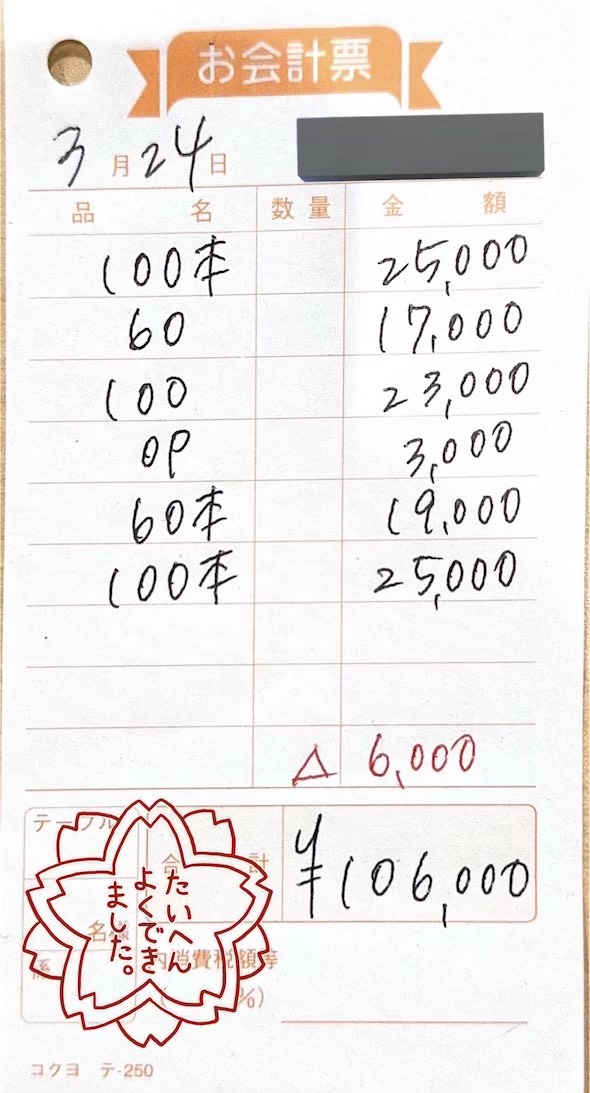 お会計票
3月24日
品名 数量 金額
100本 25,000
60 17,000
100 23,000
OP 3,000
60本 19,000
100本 25,000
△ 6,000
テーブル
合計 ¥106,000
名様
係
内消費税額等
( %)
たいへん
よくでき
ました。
コクヨ テ-250